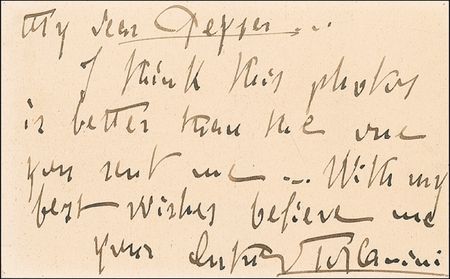 My dear Pepper...
I think this photos
is better than the one
you sent me... With my
best wishes believe me
your Toscanini